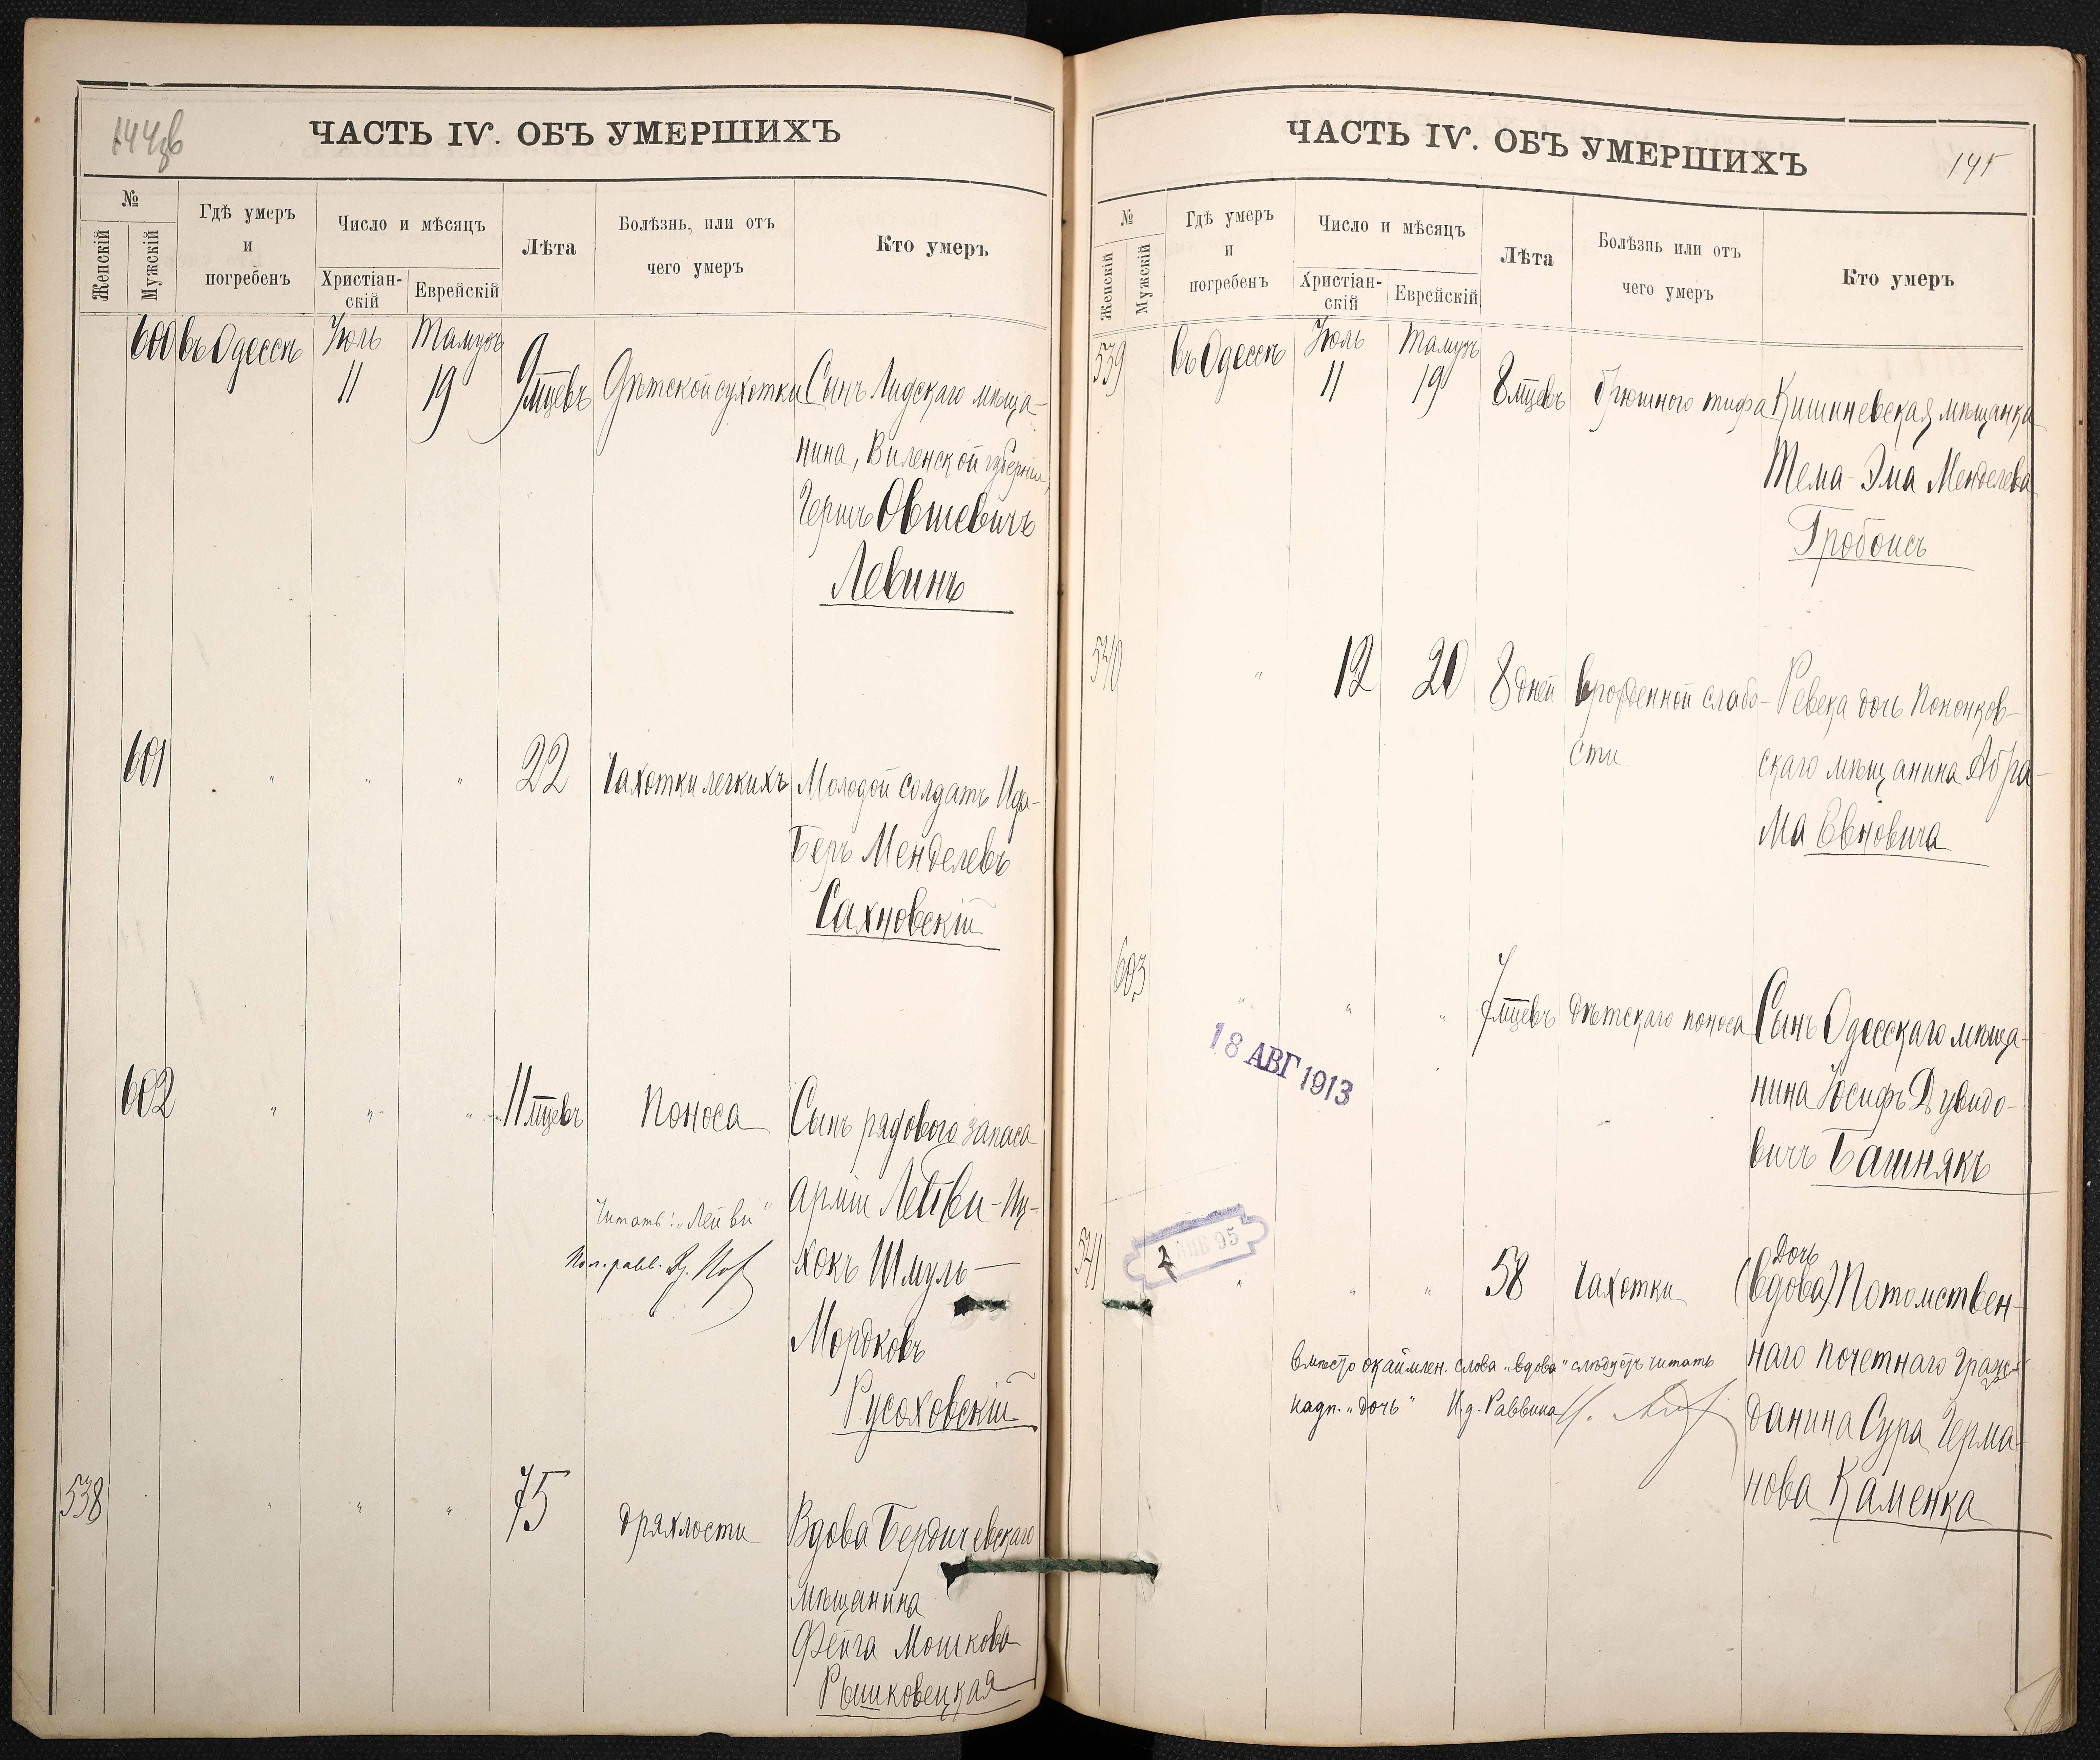 144об
ЧАСТЬ IV. ОБЪ УМЕРШИХЪ
№
Женскій
Мужскій
Гдѣ умеръ
и
погребенъ
Число и мѣсяцъ
Христіан-
скій
Еврейскій
Лѣта
Болѣзнь, или отъ
чего умеръ
Кто умеръ
600 въ Одессѣ Іюль Тамузъ
11 19 9 мцевъ Дѣтской сухотки Сынъ Лидскаго мѣща-
нина, Виленской губерніи,
Гершъ Овшевичъ
Левинъ
601 " " " 22 Чахотки легкихъ Молодой солдатъ Ица-
Беръ Менделевъ
Сахновскій
602 " " " 11 мцевъ Поноса Сынъ рядового запаса
арміи Лейви-Иц-
хокъ Шмуль-
Мордковъ
Русоховскій
Читать: „Лейви"
Пом. равв.
538 " " " 75 дряхлости Вдова Бердичевскаго
мѣщанина
Фейга Мошкова
Рышковецкая
ЧАСТЬ IV. ОБЪ УМЕРШИХЪ
145
№
Женскій
Мужскій
Гдѣ умеръ
и
погребенъ
Число и мѣсяцъ
Христіан-
скій
Еврейскій
Лѣта
Болѣзнь или отъ
чего умеръ
Кто умеръ
539 въ Одессѣ Іюль Тамузъ
11 19 8 мцевъ брюшного тифа Кишиневская мѣщанка
Тема-Эма Менделева
Гробоисъ
540 " 12 20 8 дней врожденной слабо- Ревека дочь Пононков-
сти скаго мѣщанина Абра-
ма Евновича
603 " " " 7 мцевъ дѣтскаго поноса Сынъ Одесскаго мѣща-
нина Іосифъ Дувидо-
вичъ Башнякъ
18 АВГ 1913
2 ЯНВ 95
541 " " " 58 Чахотки (вдова) Потомствен-
дочь
наго почетнаго граж-
данина Сура Герма-
нова Каменка
вмѣсто окаймлен. слова „вдова" слѣдуетъ читать
надп. „дочь" И.д. Раввина